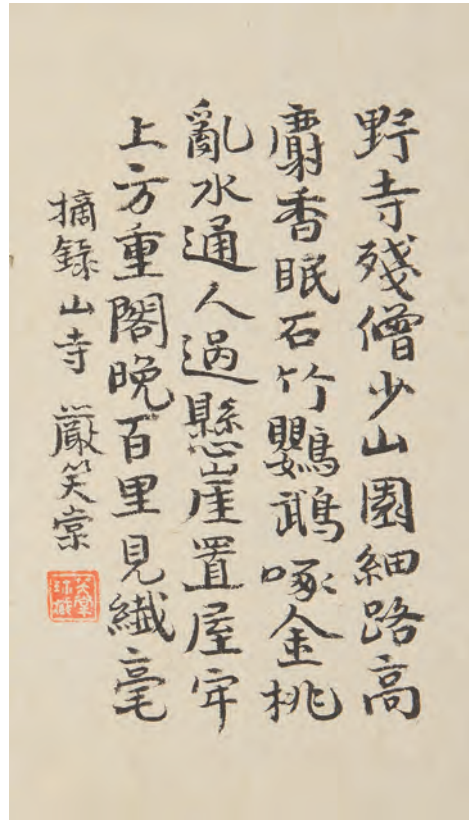 野寺殘僧少山園細路高
麝香眠石竹鸚鵡啄金桃
亂水通人過懸崖置屋牢
上方重閣晚百里見纖毫
摘錄山寺 嚴笑棠